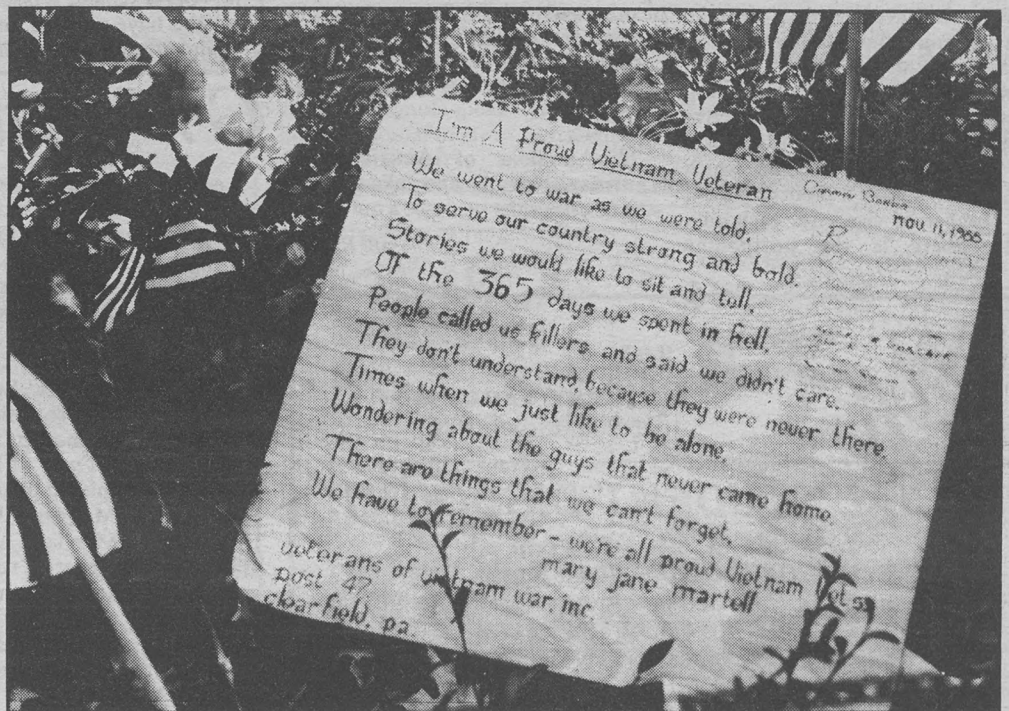 I'm A Proud Vietnam Veteran
nov. 11, 1988
We went to war as we were told,
To serve our country strong and bold.
Stories we would like to sit and tell,
Of the 365 days we spent in hell.
People called us killers and said we didn't care.
They don't understand, because they were never there.
Times when we just like to be alone,
Wondering about the guys that never came home.
There are things that we can't forget,
We have to remember - we're all proud Vietnam
mary jane martell
veterans of vietnam war, inc.
post 47
clearfield, pa.